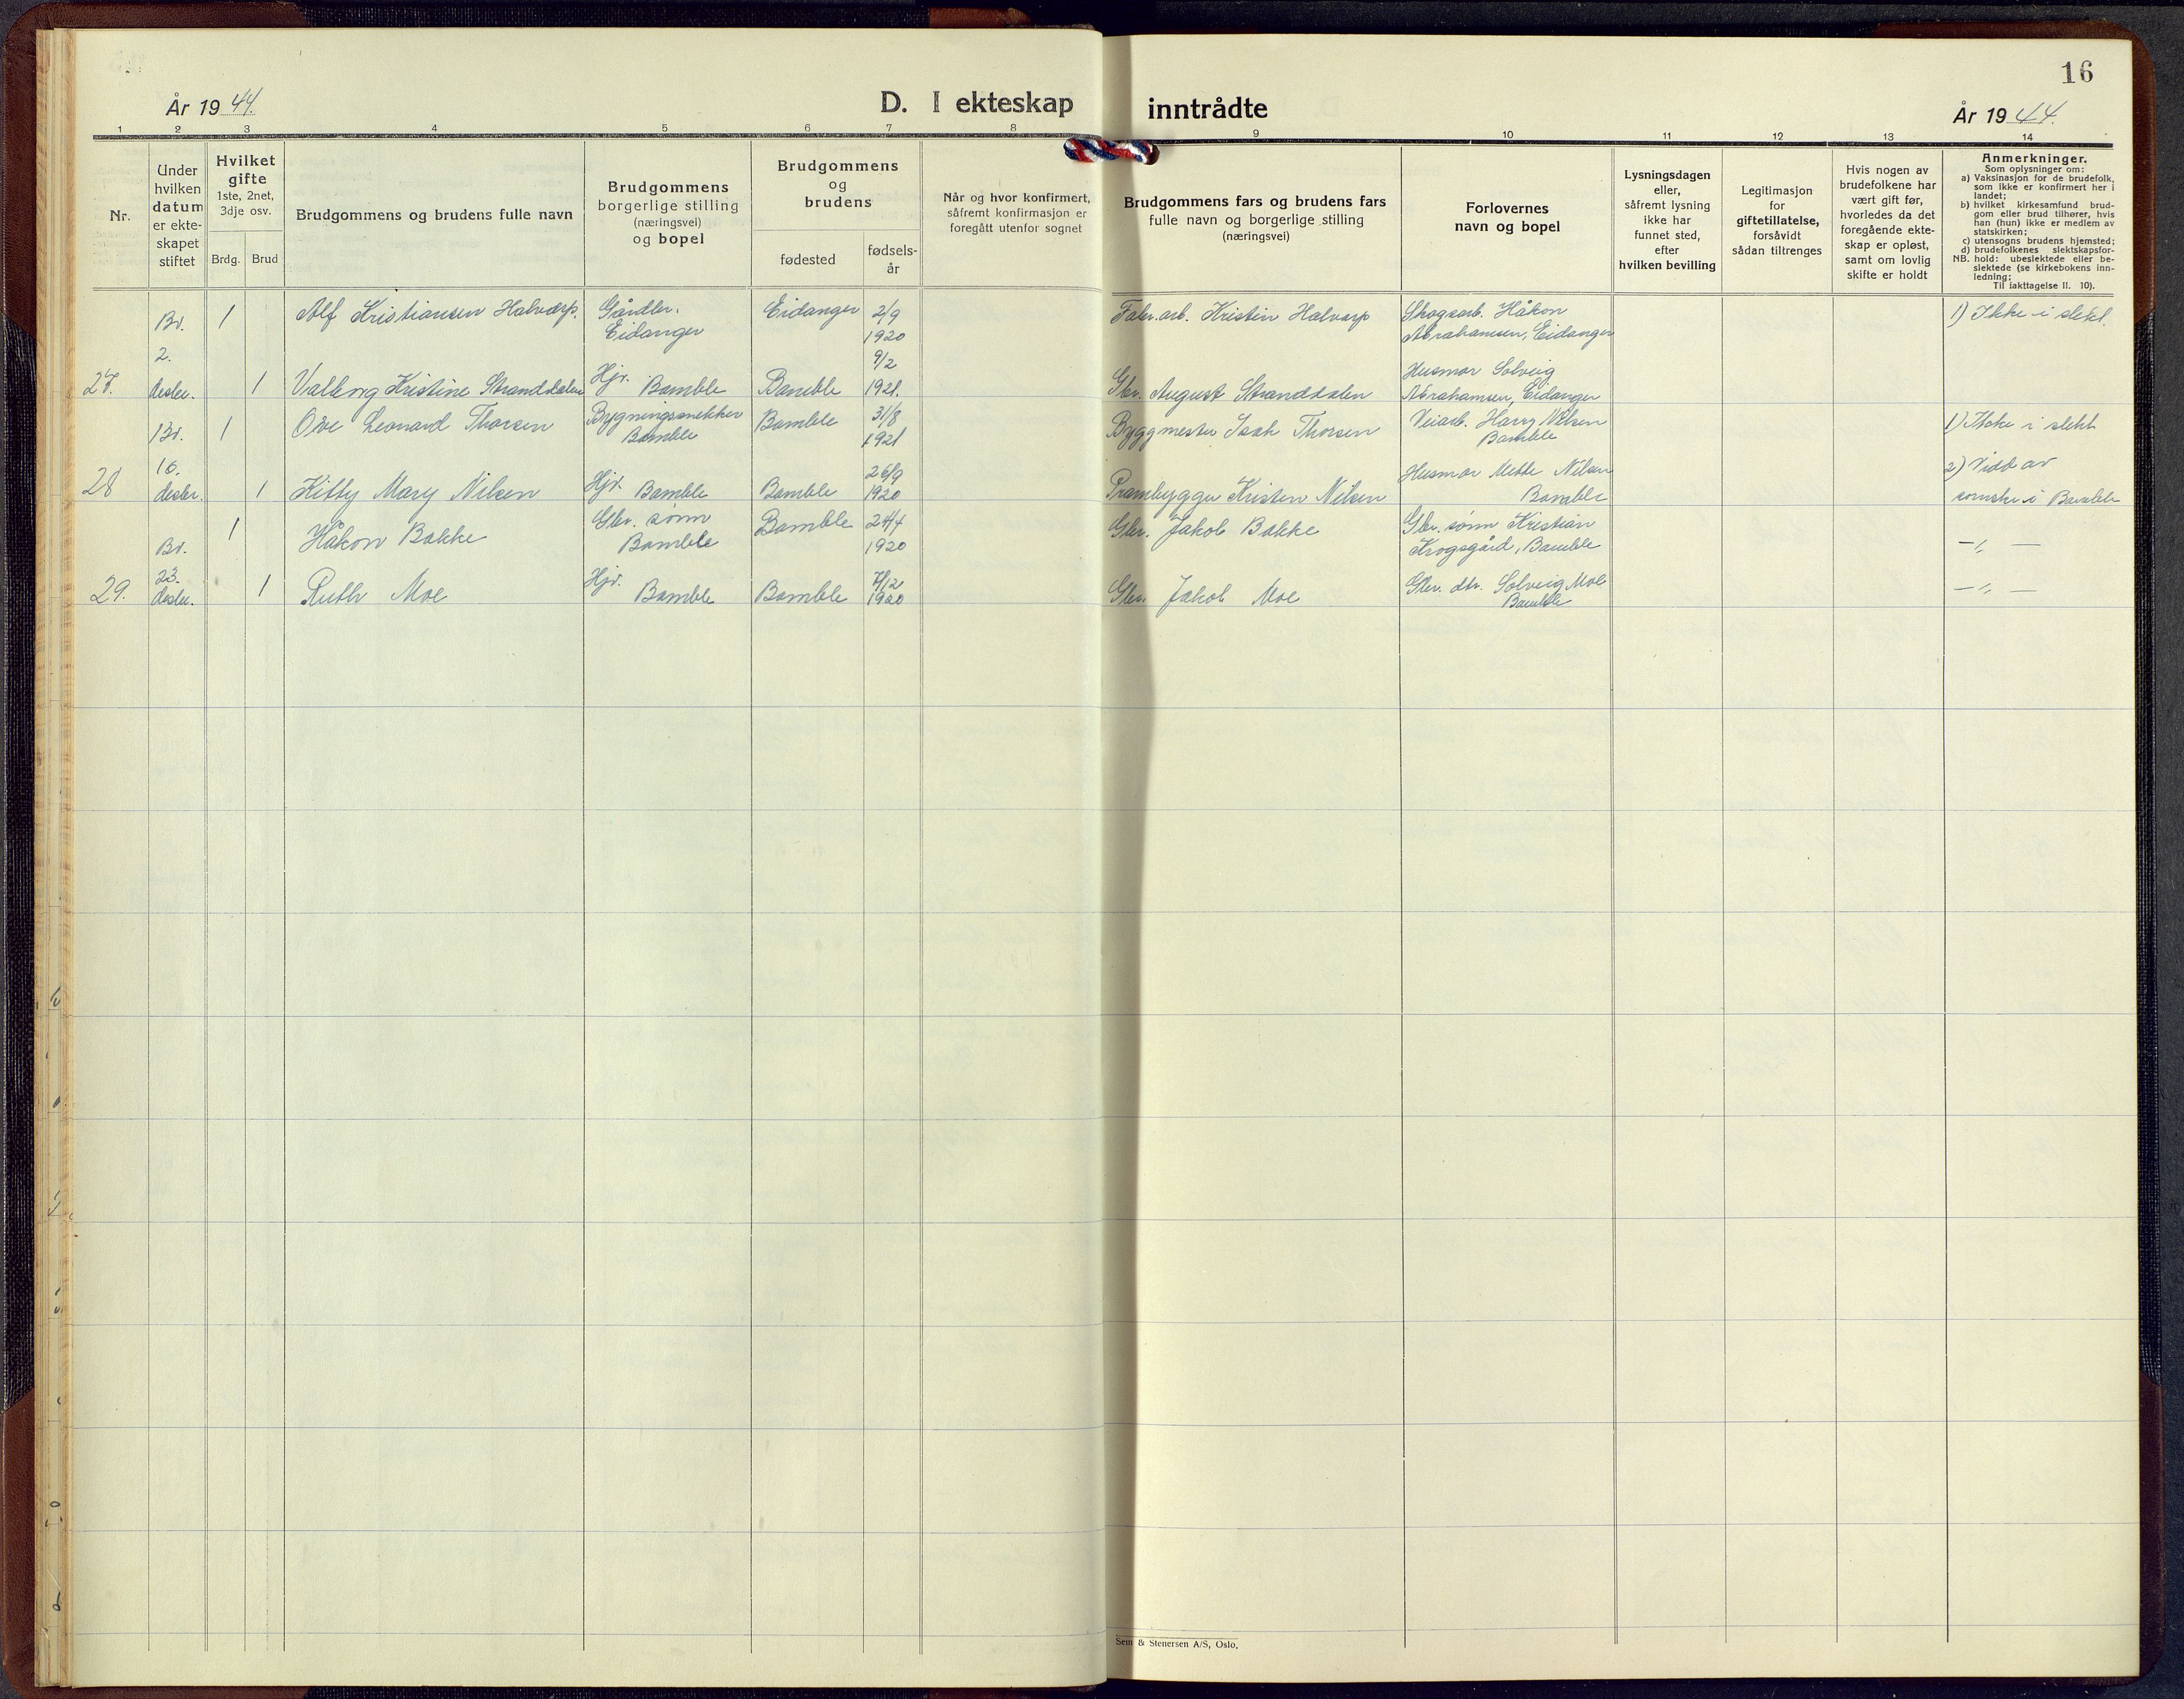 16
År 1944.
D. I ekteskap inntrådte
År 1944.
1 2 3 4 5 6 7 8 9 10 11 12 13 14
Nr.
Under
hvilken
datum
er ekte-
skapet
stiftet
Hvilket
gifte
1ste, 2net,
3dje osv.
Brdg. Brud
Brudgommens og brudens fulle navn
Brudgommens
borgerlige stilling
(næringsvei)
og bopel
Brudgommens
og
brudens
fødested
fødsels-
år
Når og hvor konfirmert,
såfremt konfirmasjon er
foregått utenfor sognet
Brudgommens fars og brudens fars
fulle navn og borgerlige stilling
(næringsvei)
Forlovernes
navn og bopel
Lysningsdagen
eller,
såfremt lysning
ikke har
funnet sted,
efter
hvilken bevilling
Legitimasjon
for
giftetillatelse,
forsåvidt
sådan tiltrenges
Hvis nogen av
brudefolkene har
vært gift før,
hvorledes da det
foregående ekte-
skap er opløst,
samt om lovlig
skifte er holdt
Anmerkninger.
Som oplysninger om:
a) Vaksinasjon for de brudefolk,
som ikke er konfirmert her i
landet;
b) hvilket kirkesamfund brud-
gom eller brud tilhører, hvis
han (hun) ikke er medlem av
statskirken;
c) utensogns brudens hjemsted;
d) brudefolkenes slektskapsfor-
NB. hold: ubeslektede eller be-
slektede (se kirkebokens inn-
ledning;
Til iakttagelse II. 10).
Br. 1 Alf Kristiansen Halvarp. Gårdbr. Eidanger 2/9 Fabr.arb. Kristin Halvarp Skogsarb. Håkon 1) Ikke i slekt.
Eidanger 1920 Abrahamsen, Eidanger
2. 9/2 Husmor Solveig
27. desbr. 1 Valborg Kristine Stranddalen Hjv. Bamble Bamble 1921. Gbr. August Stranddalen Abrahamsen, Eidanger
Br. 1 Ove Leonard Thorsen Bygningssnekker Bamble 31/8 Byggmester Isak Thorsen Veiarb. Harry Nilsen 1) Ikke i slekt
Bamble 1921 Bamble
16. 26/9 Husmor Mette Nilsen 2) Vidd av
28 desbr. 1 Kitty Mary Nilsen Hjv. Bamble Bamble 1920 Prambygger Kristen Nilsen Bamble i Bamble
1 Håkon Bakke Gbr. sønn Bamble 24/4 Gbr. Jakob Bakke Gbr. sønn Kristian
Br. Bamble 1920 Krogsgård, Bamble —„—
23. 7/12
29. desbr. 1 Ruth Moe Hjv. Bamble Bamble 1920 Gbr. Jakob Moe Gbr. dtr. Solveig Moe —„—
Bamble
Sem & Stenersen A/S, Oslo.